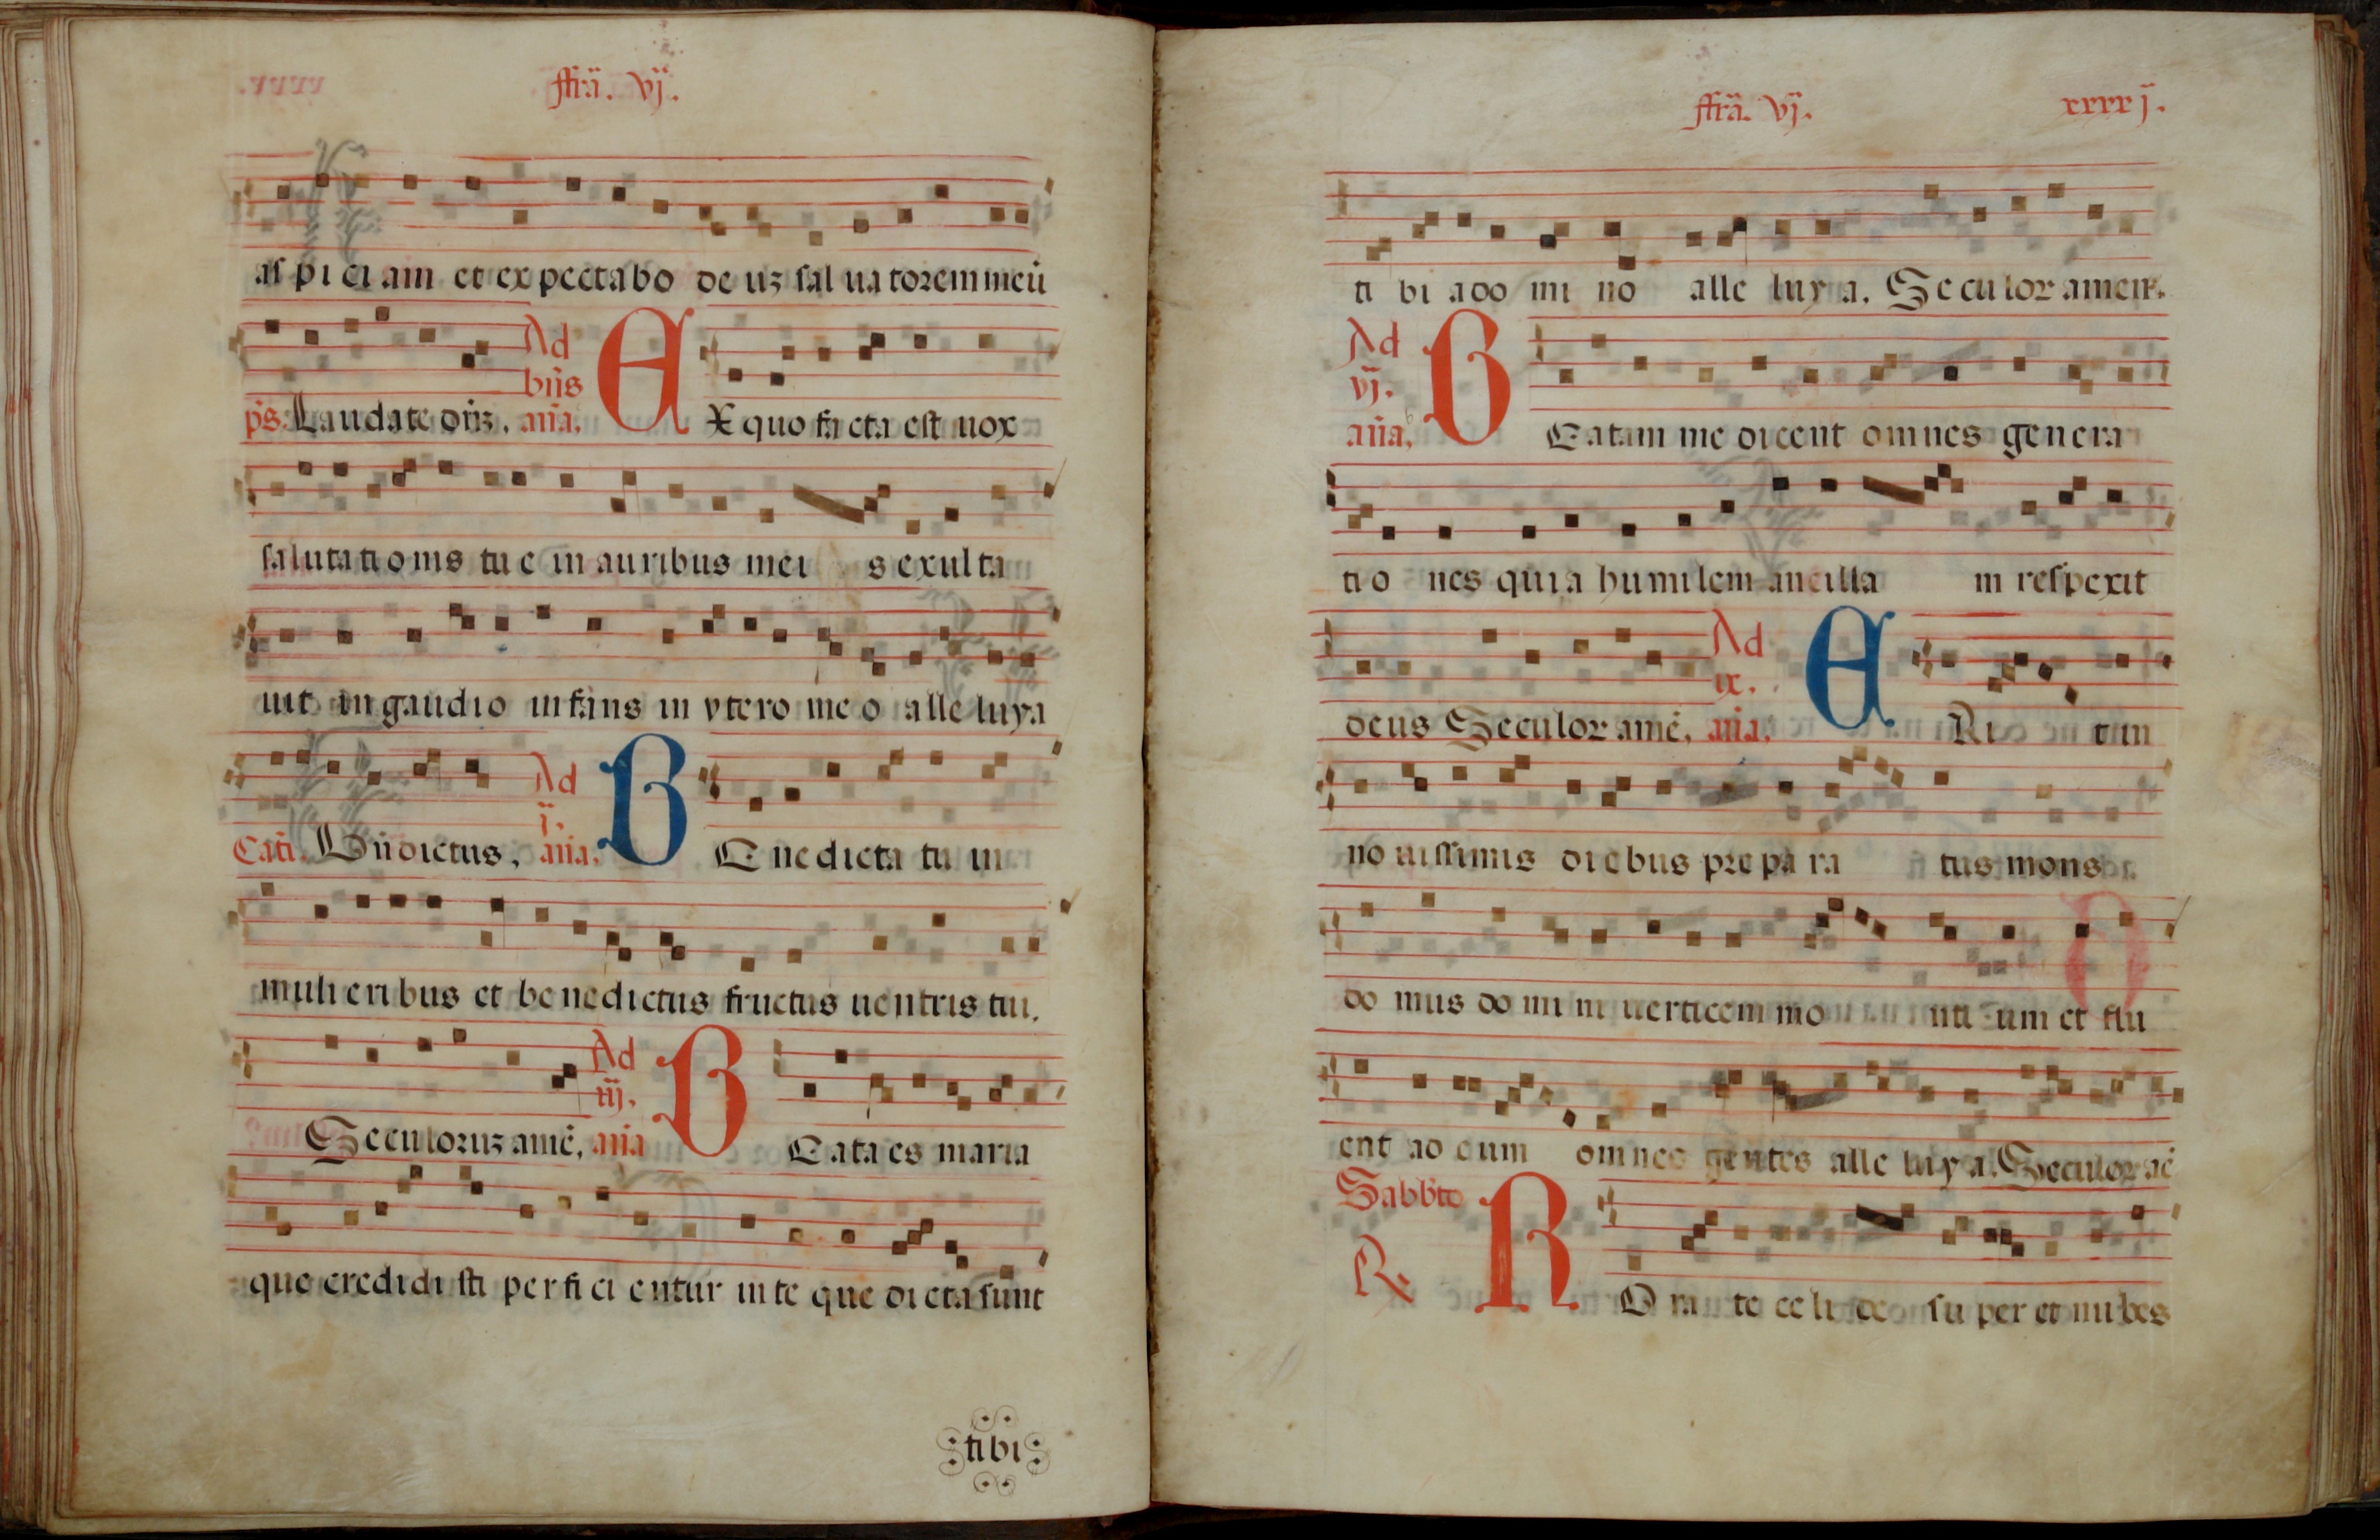 ffrã. vj.
aspiciam et expectabo deuʒ saluatorem meũ
Ad
bñs
p̃s. Laudate dñʒ. aña. EX quo facta est uox
salutationis tue in auribus meis exulta
uit in gaudio infans in vtero meo alleluya
Ad
j.
Cãti. Bñdictus. aña. BEnedicta tu in
mulieribus et benedictus fructus uentris tui.
Ad
iij.
Seculoruʒ amẽ. aña BEata es maria
que credidisti perficientur in te que dicta sunt
tibi
ffrã. vj. xxxxj.
tibi a domino alleluya. Seculor amen.
Ad
vj.
aña. BEatam me dicent omnes genera
tiones quia humilem ancillam respexit
Ad
ix.
deus Seculor amẽ. aña. ERit in
nouissimis diebus preparatus mons
domus domini in uerticem montium et flu
ent ad eum omnes gentes alleluya. Seculor aẽ
Sabbto
R. ROrate celi desuper et nubes